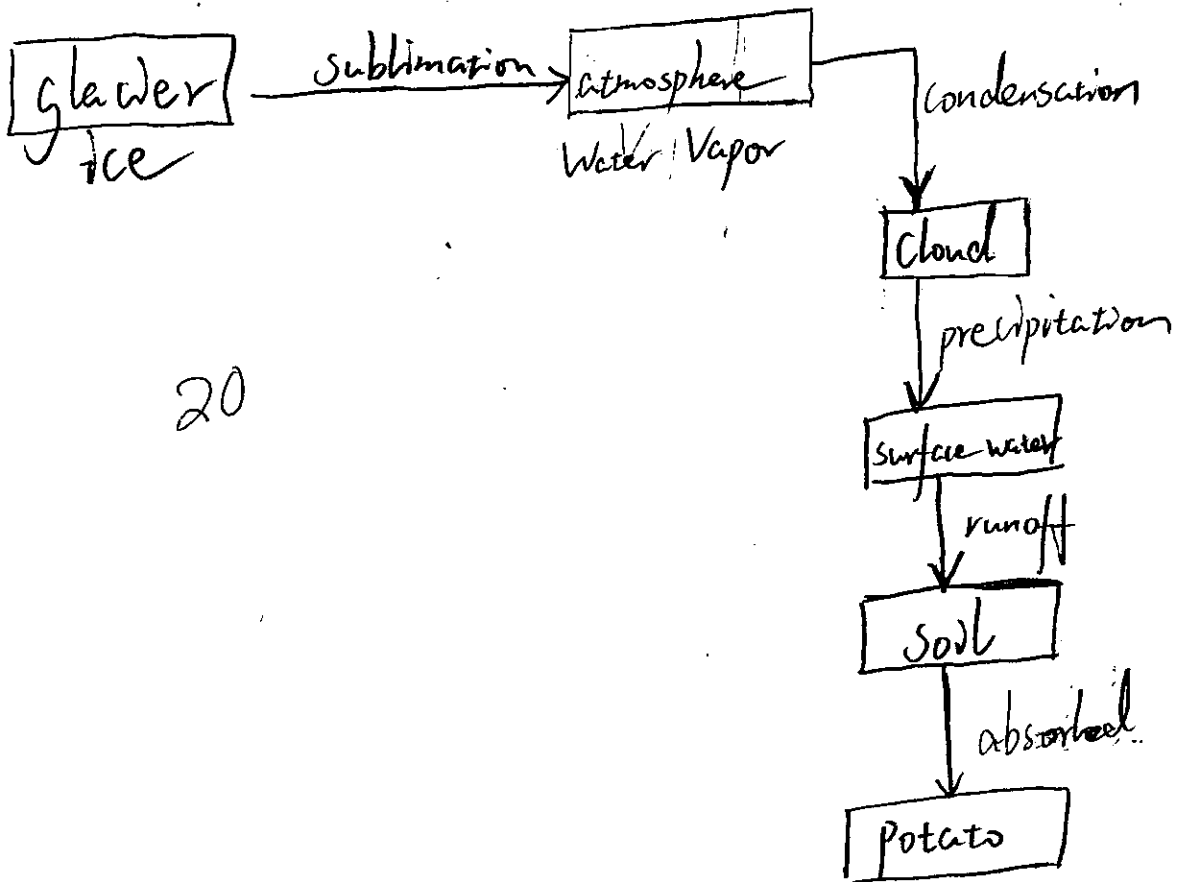 glacier
ice
sublimation
atmosphere
Water Vapor
condensation
Cloud
precipitation
surface water
runoff
Soil
absorbed
Potato
20